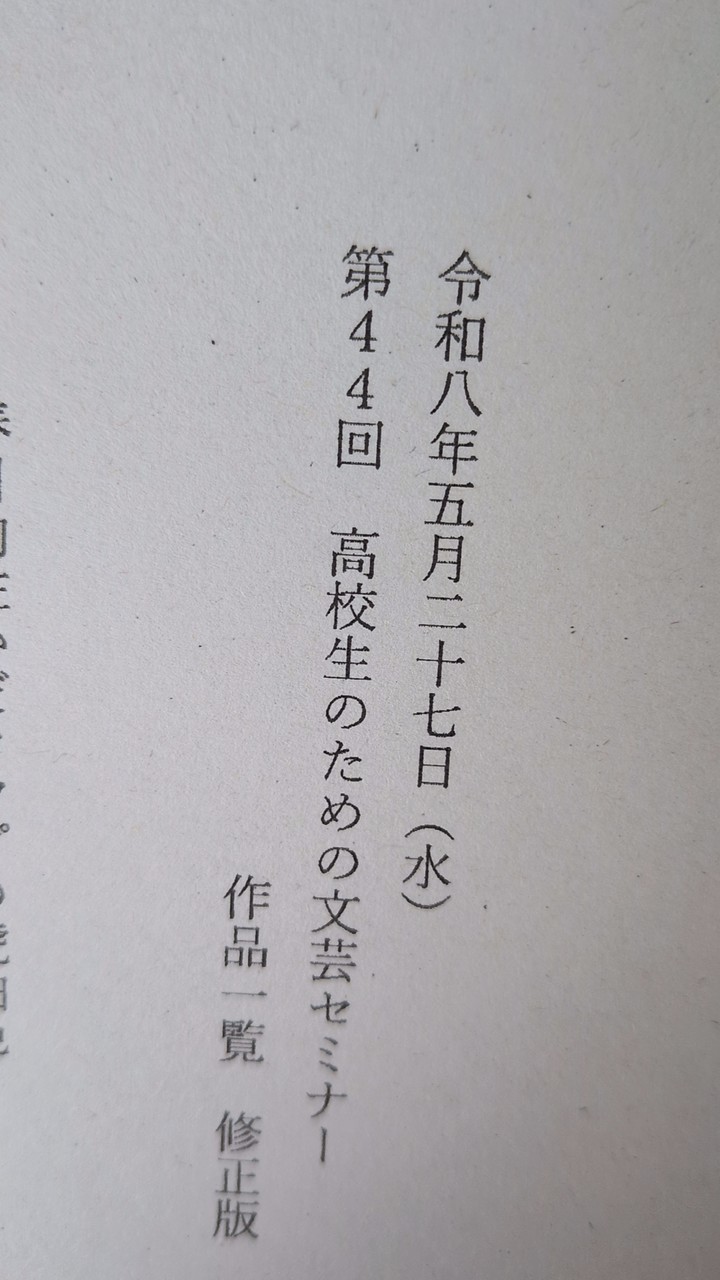 令和八年五月二十七日（水）
第４４回　高校生のための文芸セミナー
作品一覧　修正版